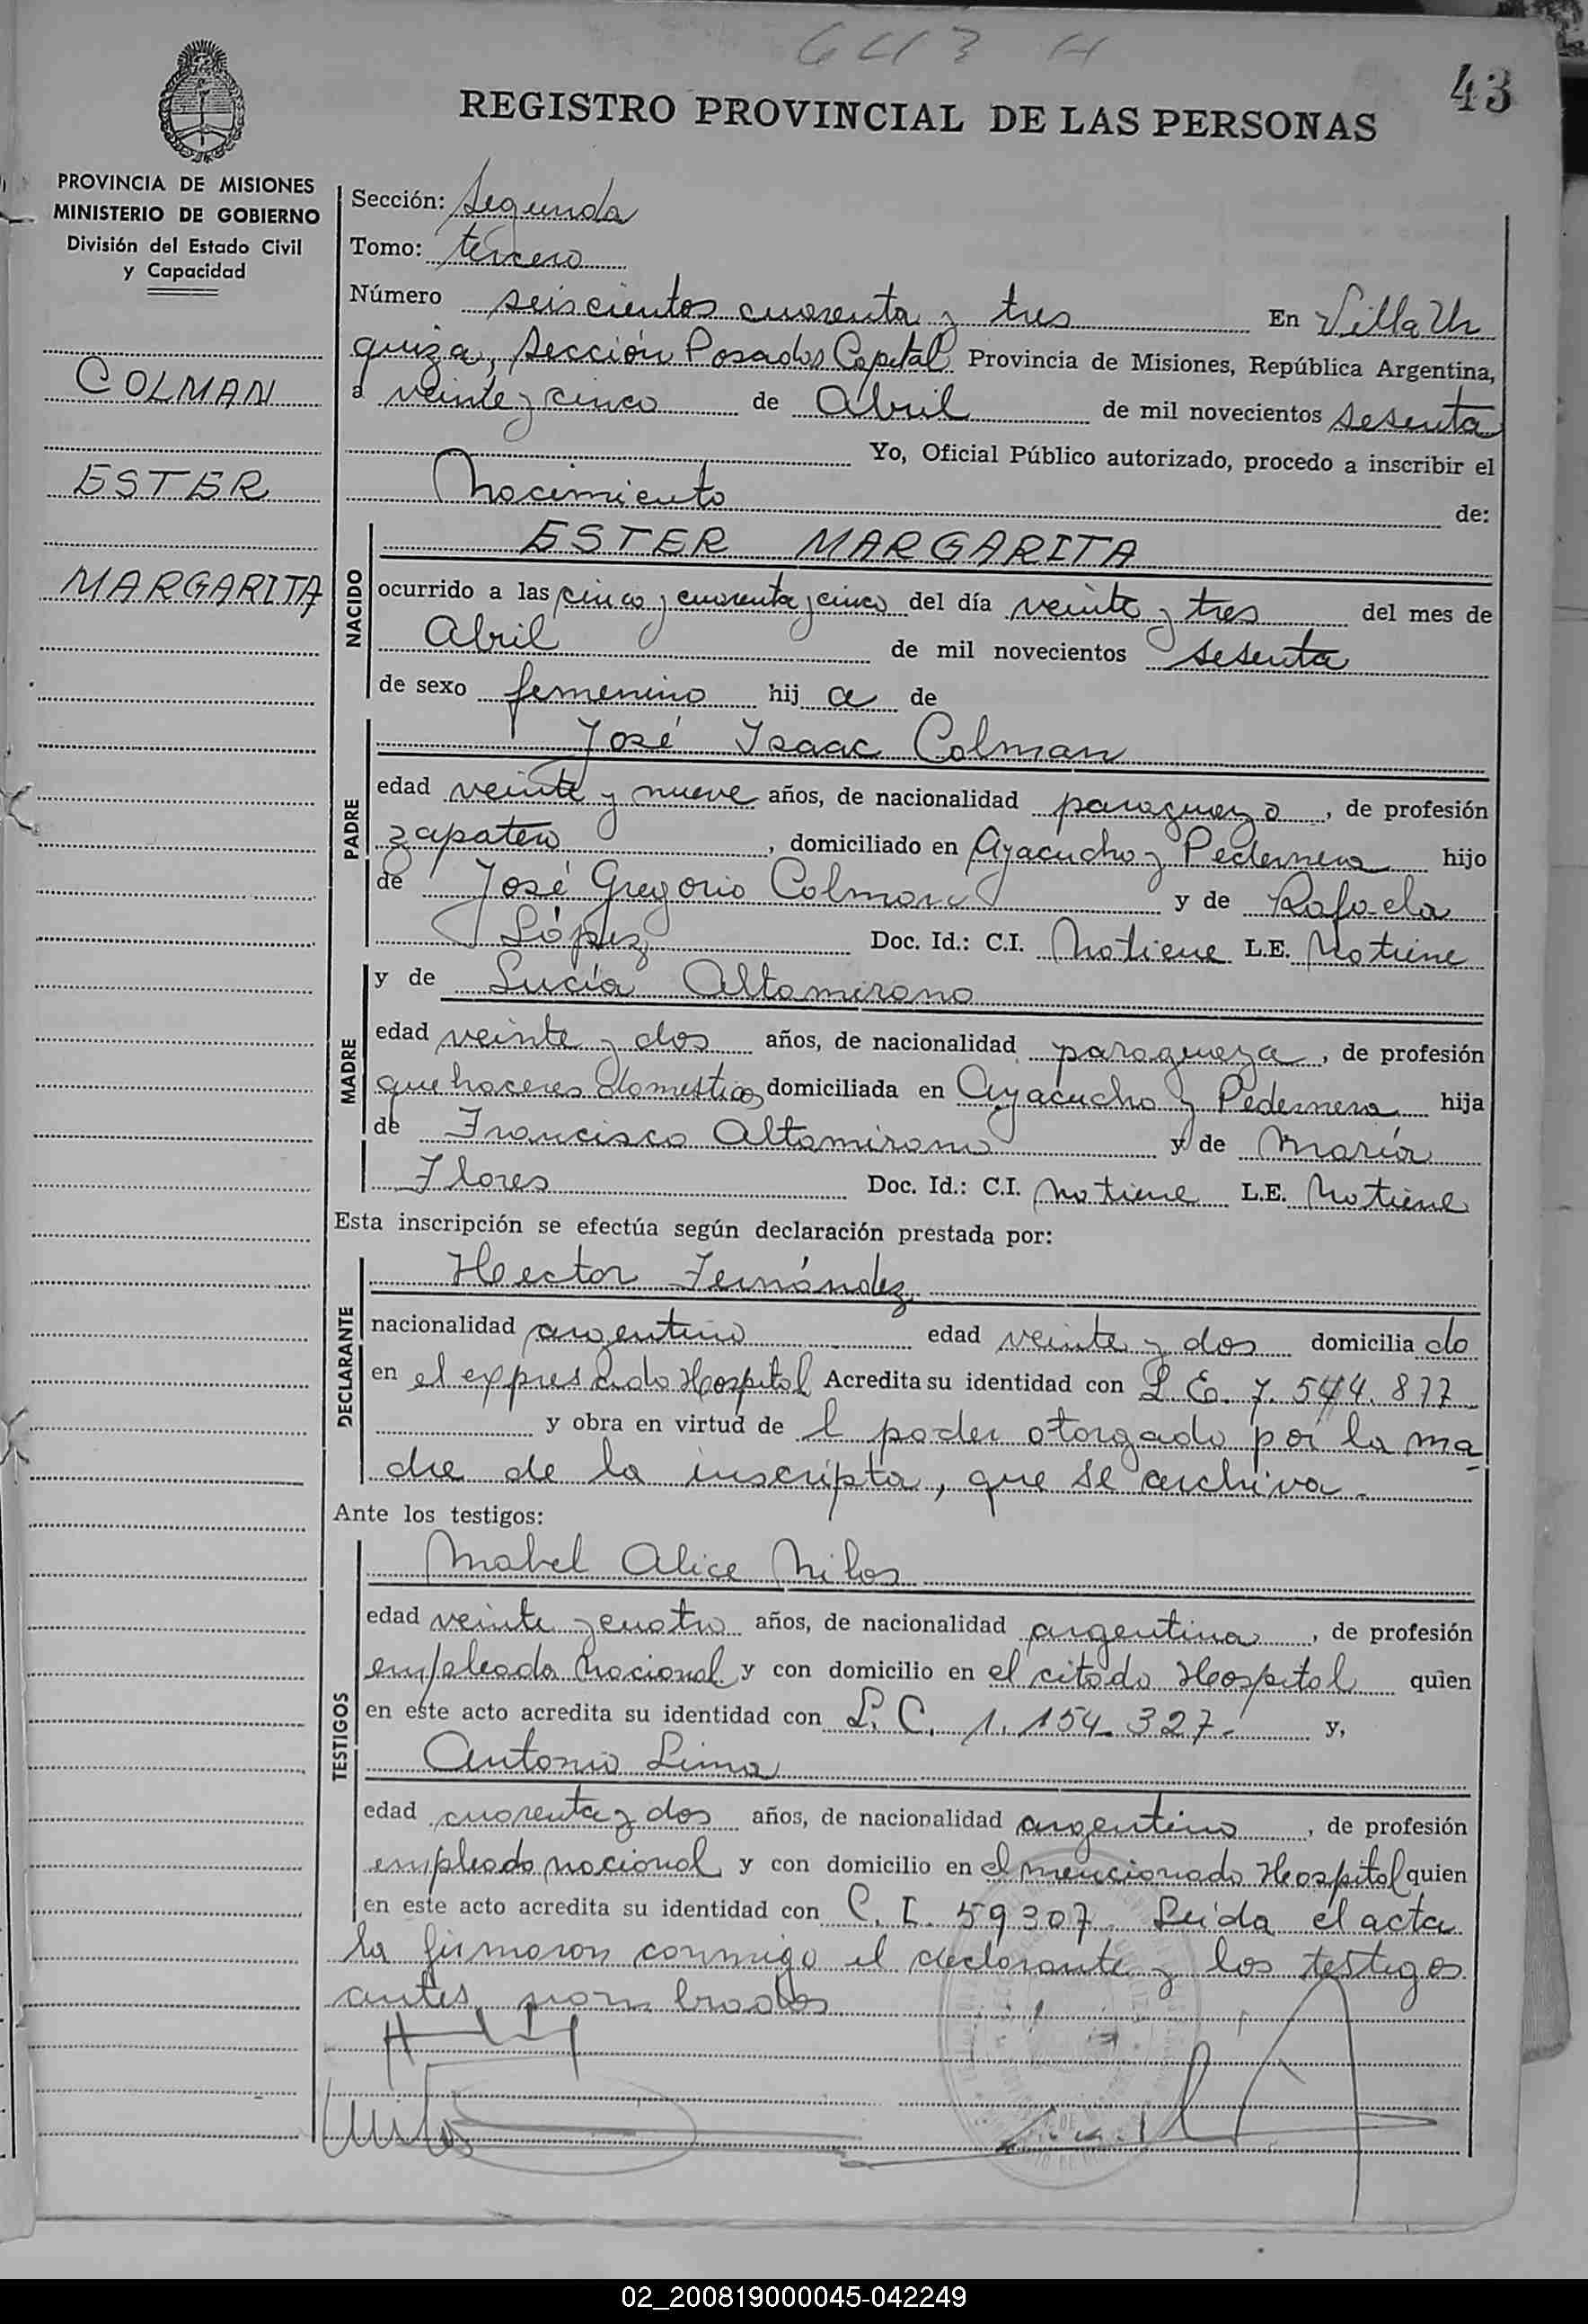 643 H
43
REGISTRO PROVINCIAL DE LAS PERSONAS
PROVINCIA DE MISIONES
MINISTERIO DE GOBIERNO
División del Estado Civil
y Capacidad
COLMAN
ESTER
MARGARITA
Sección: Segunda
Tomo: tercero
Número seiscientos cuarenta y tres En Villa Ur
quiza, Sección Posadas Capital Provincia de Misiones, República Argentina,
a veinte y cinco de Abril de mil novecientos sesenta
Yo, Oficial Público autorizado, procedo a inscribir el
Nacimiento de:
NACIDO
ESTER MARGARITA
ocurrido a las cinco y cuarenta y cinco del día veinte y tres del mes de
Abril de mil novecientos sesenta
de sexo femenino hij a de
PADRE
José Isaac Colman
edad veinte y nueve años, de nacionalidad paraguayo, de profesión
zapatero, domiciliado en Ayacucho y Pedernera hijo
de José Gregorio Colman y de Rafaela
López Doc. Id.: C.I. No tiene L.E. No tiene
MADRE
y de Lucía Altamirano
edad veinte y dos años, de nacionalidad paraguaya, de profesión
quehaceres domesticos domiciliada en Ayacucho y Pedernera hija
de Francisco Altamirano y de María
Flores Doc. Id.: C.I. No tiene L.E. No tiene
Esta inscripción se efectúa según declaración prestada por:
DECLARANTE
Hector Fernández
nacionalidad argentino edad veinte y dos domicilia do
en el expresado Hospital Acredita su identidad con L. E. 7.544.877
y obra en virtud de l poder otorgado por la ma
dre de la inscripta, que se archiva.-
Ante los testigos:
TESTIGOS
Mabel Alice Nilos
edad veinte y cuatro años, de nacionalidad argentina, de profesión
empleada Nacional y con domicilio en el citado Hospital quien
en este acto acredita su identidad con L. C. 1.154.327.- y,
Antonio Lima
edad cuarenta y dos años, de nacionalidad argentino, de profesión
empleado nacional y con domicilio en el mencionado Hospital quien
en este acto acredita su identidad con C. I. 59307. Leida el acta
la firmaron conmigo el declarante y los testigos
antes nombrados
02_200819000045-042249